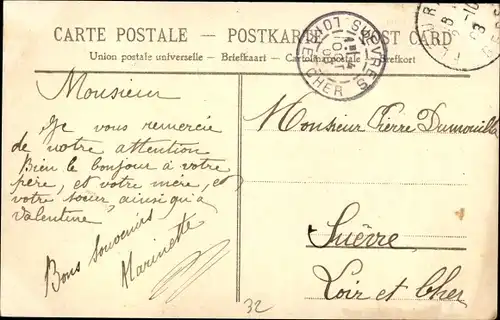 CARTE POSTALE - POSTKARTE - POST CARD
Union postale universelle - Briefkaart - Cartolina postale - Brefkort
SUÈVRES
LOIR-ET-CHER
Monsieur
Je vous remercie
de notre attention
Bien le bonjour à votre
père, et votre mère, et
votre soeur, ainsi qu'à
Valentine
Bons Souvenirs
Marinette
Monsieur Pierre
Suèvre
Loir et Cher
32